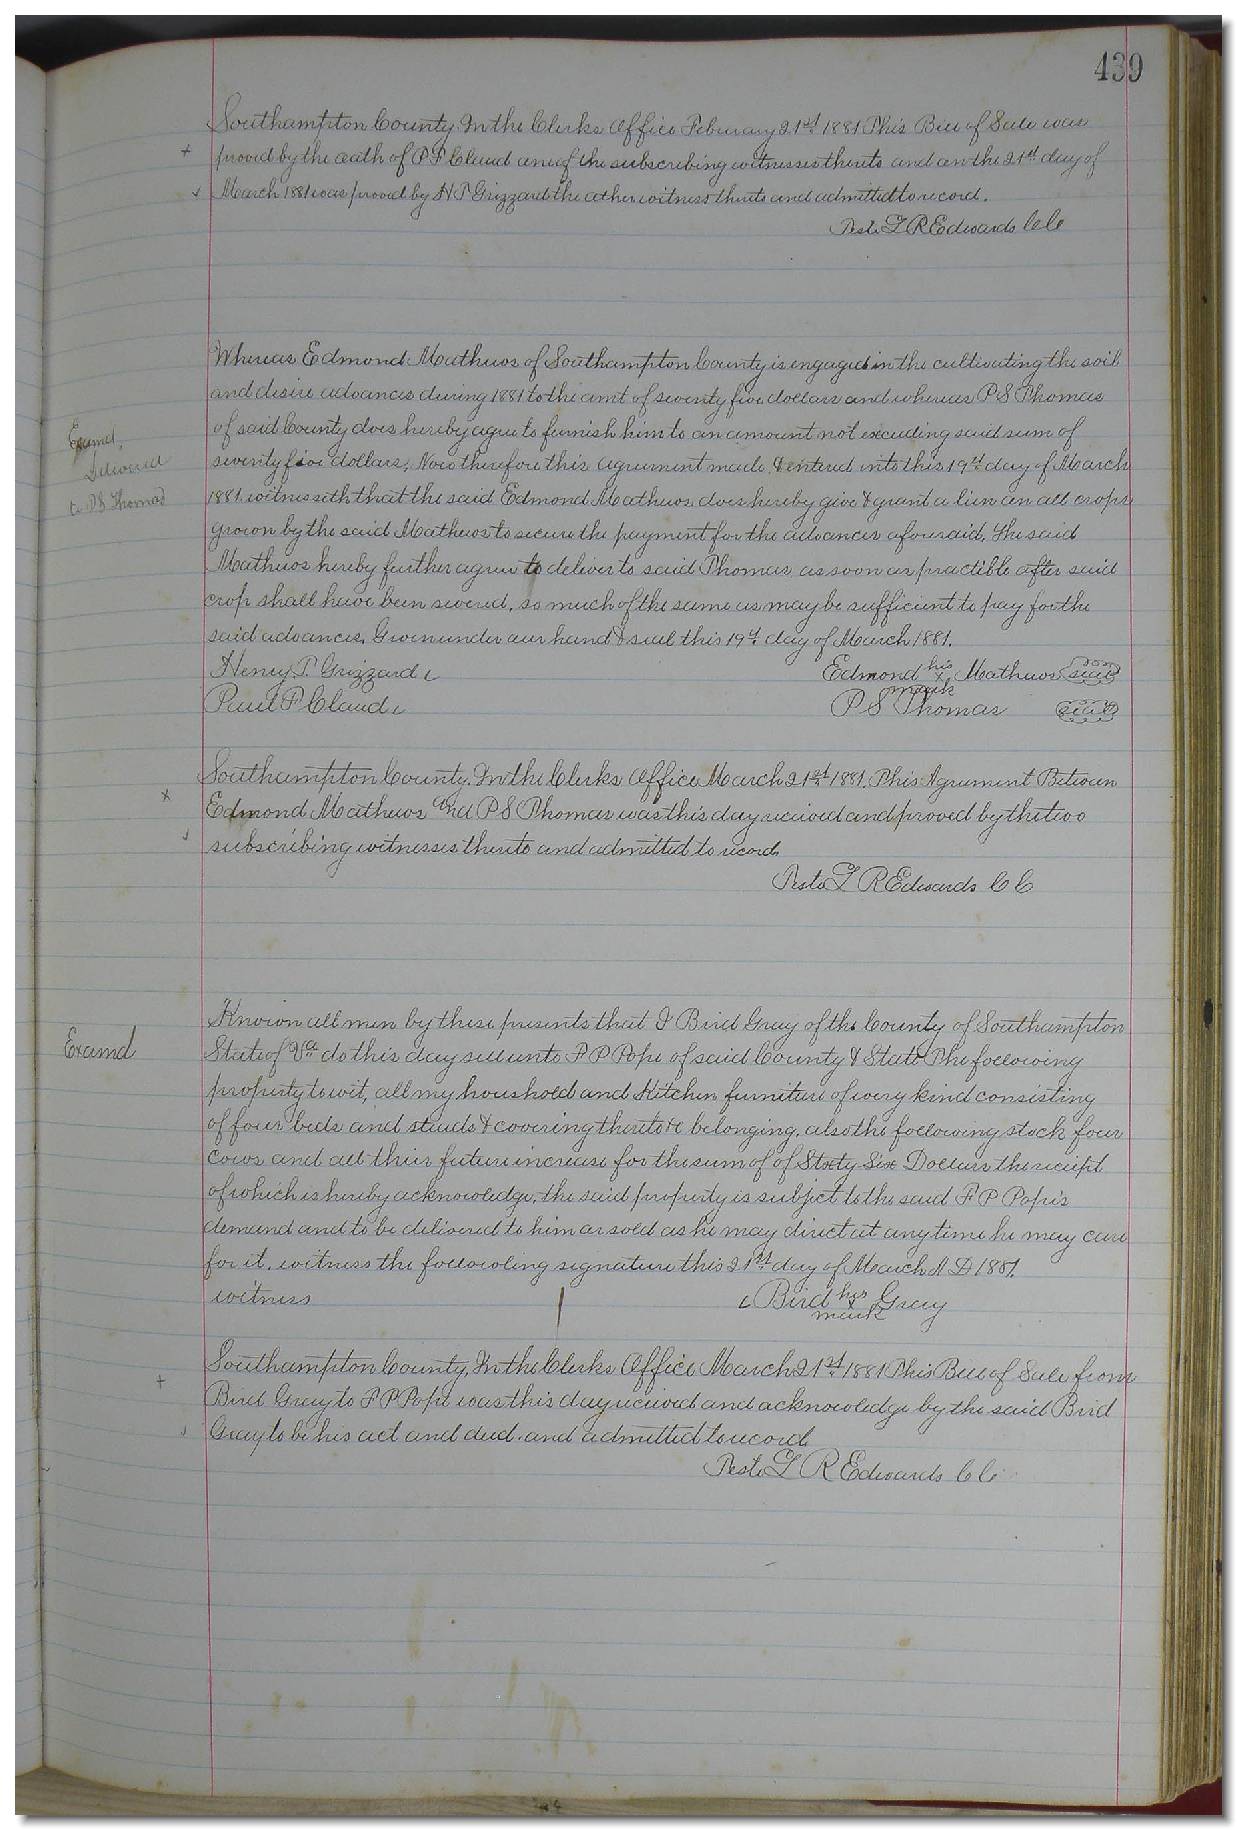 439
Southampton County. In the Clerks Office February 21st 1881 This Bill of Sale was
proved by the oath of P F Claud one of the subscribing witnesses thereto and on the 21st day of
March 1881 was proved by H P Grizzard the other witness thereto and admitted to record.
Teste L R Edwards C C
Whereas Edmond Mathews of Southampton County is engaged in the cultivating the soil
and desire advances during 1881 to the amt of seventy five dollars and whereas P S Thomas
Examd,
of said County does hereby agree to furnish him to an amount not exceeding said sum of
Delivered
seventy five dollars, Now therefore this agreement made & entered into this 19th day of March
to P S Thomas
1881 witnesseth that the said Edmond Mathews does hereby give & grant a lien on all crops
grown by the said Mathews to secure the payment for the advances aforesaid, the said
Mathews hereby further agree to deliver to said Thomas as soon as practible after said
crop shall have been severed, so much of the same as may be sufficient to pay for the
said advances, Given under our hand & seal this 19th day of March 1881.
Henry P. Grizzard
Edmond his x mark Mathews seal
Paul F Claud
P S Thomas seal
Southampton County. In the Clerks Office March 21st 1881. This Agreement Between
Edmond Mathews and P S Thomas was this day received and proved by the two
subscribing witnesses thereto and admitted to record
Teste L R Edwards C C
Examd
Known all men by these presents that I Bird Gray of the County of Southampton
State of Va do this day sell unto F P Pope of said County & State The following
property to wit, all my houshold and Kitchen furniture of every kind consisting
of four beds and steads & covering thereto belonging, also the following stock four
cows and all their future increase for the sum of of Sixty Six Dollars the receipt
of which is hereby acknowledge, the said property is subject to the said F P Pope's
demand and to be delivered to him or sold as he may direct at any time he may care
for it, witness the following signature this 21st day of March A D 1881.
witness
Bird his x mark Gray
Southampton County, In the Clerks Office March 21st 1881 This Bill of Sale from
Bird Gray to F P Pope was this day received and acknowledge by the said Brid
Gray to be his act and deed and admitted to record
Teste L R Edwards C C